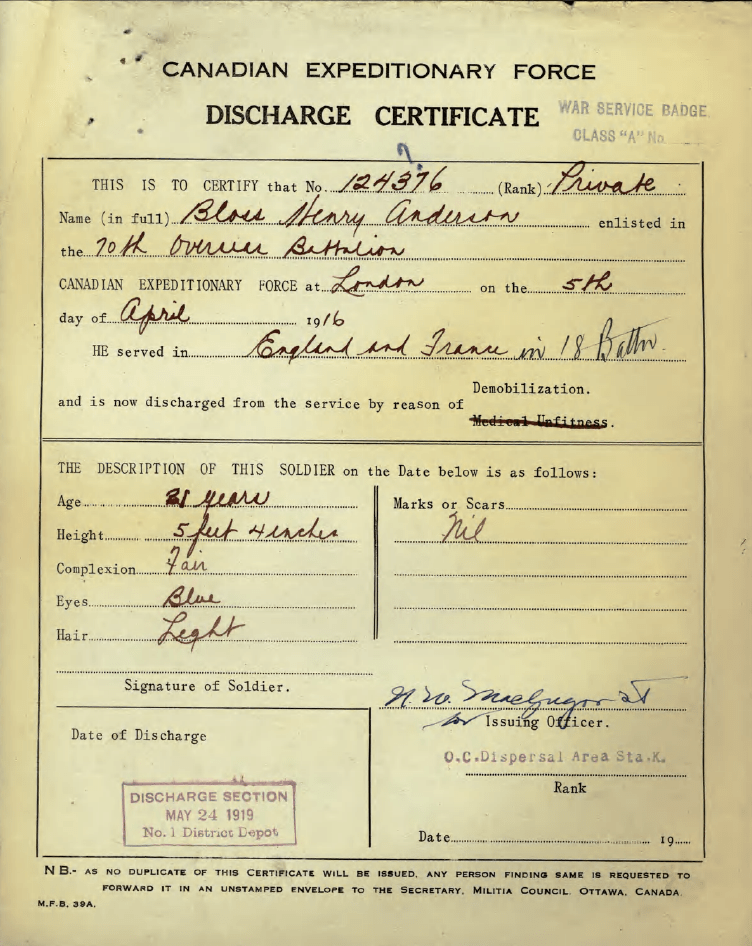 CANADIAN EXPEDITIONARY FORCE
DISCHARGE CERTIFICATE
WAR SERVICE BADGE
CLASS "A" No
7
THIS IS TO CERTIFY that No. 124376 (Rank) Private
Name (in full) Bloss Henry Anderson enlisted in
the 70th Overseas Battalion
CANADIAN EXPEDITIONARY FORCE at London on the 5th
day of April 1916
HE served in England and France in 18 Battn
Demobilization.
and is now discharged from the service by reason of
Medical Unfitness.
THE DESCRIPTION OF THIS SOLDIER on the Date below is as follows:
Age 21 years
Height 5 feet 4 inches
Complexion Fair
Eyes Blue
Hair Light
Marks or Scars
Nil
Signature of Soldier.
MacGregor
for Issuing Officer.
O.C. Dispersal Area Sta. K.
Rank
Date of Discharge
DISCHARGE SECTION
MAY 24 1919
No. 1 District Depot
Date 19
NB.- AS NO DUPLICATE OF THIS CERTIFICATE WILL BE ISSUED, ANY PERSON FINDING SAME IS REQUESTED TO
FORWARD IT IN AN UNSTAMPED ENVELOPE TO THE SECRETARY, MILITIA COUNCIL. OTTAWA, CANADA.
M.F.B. 39A.